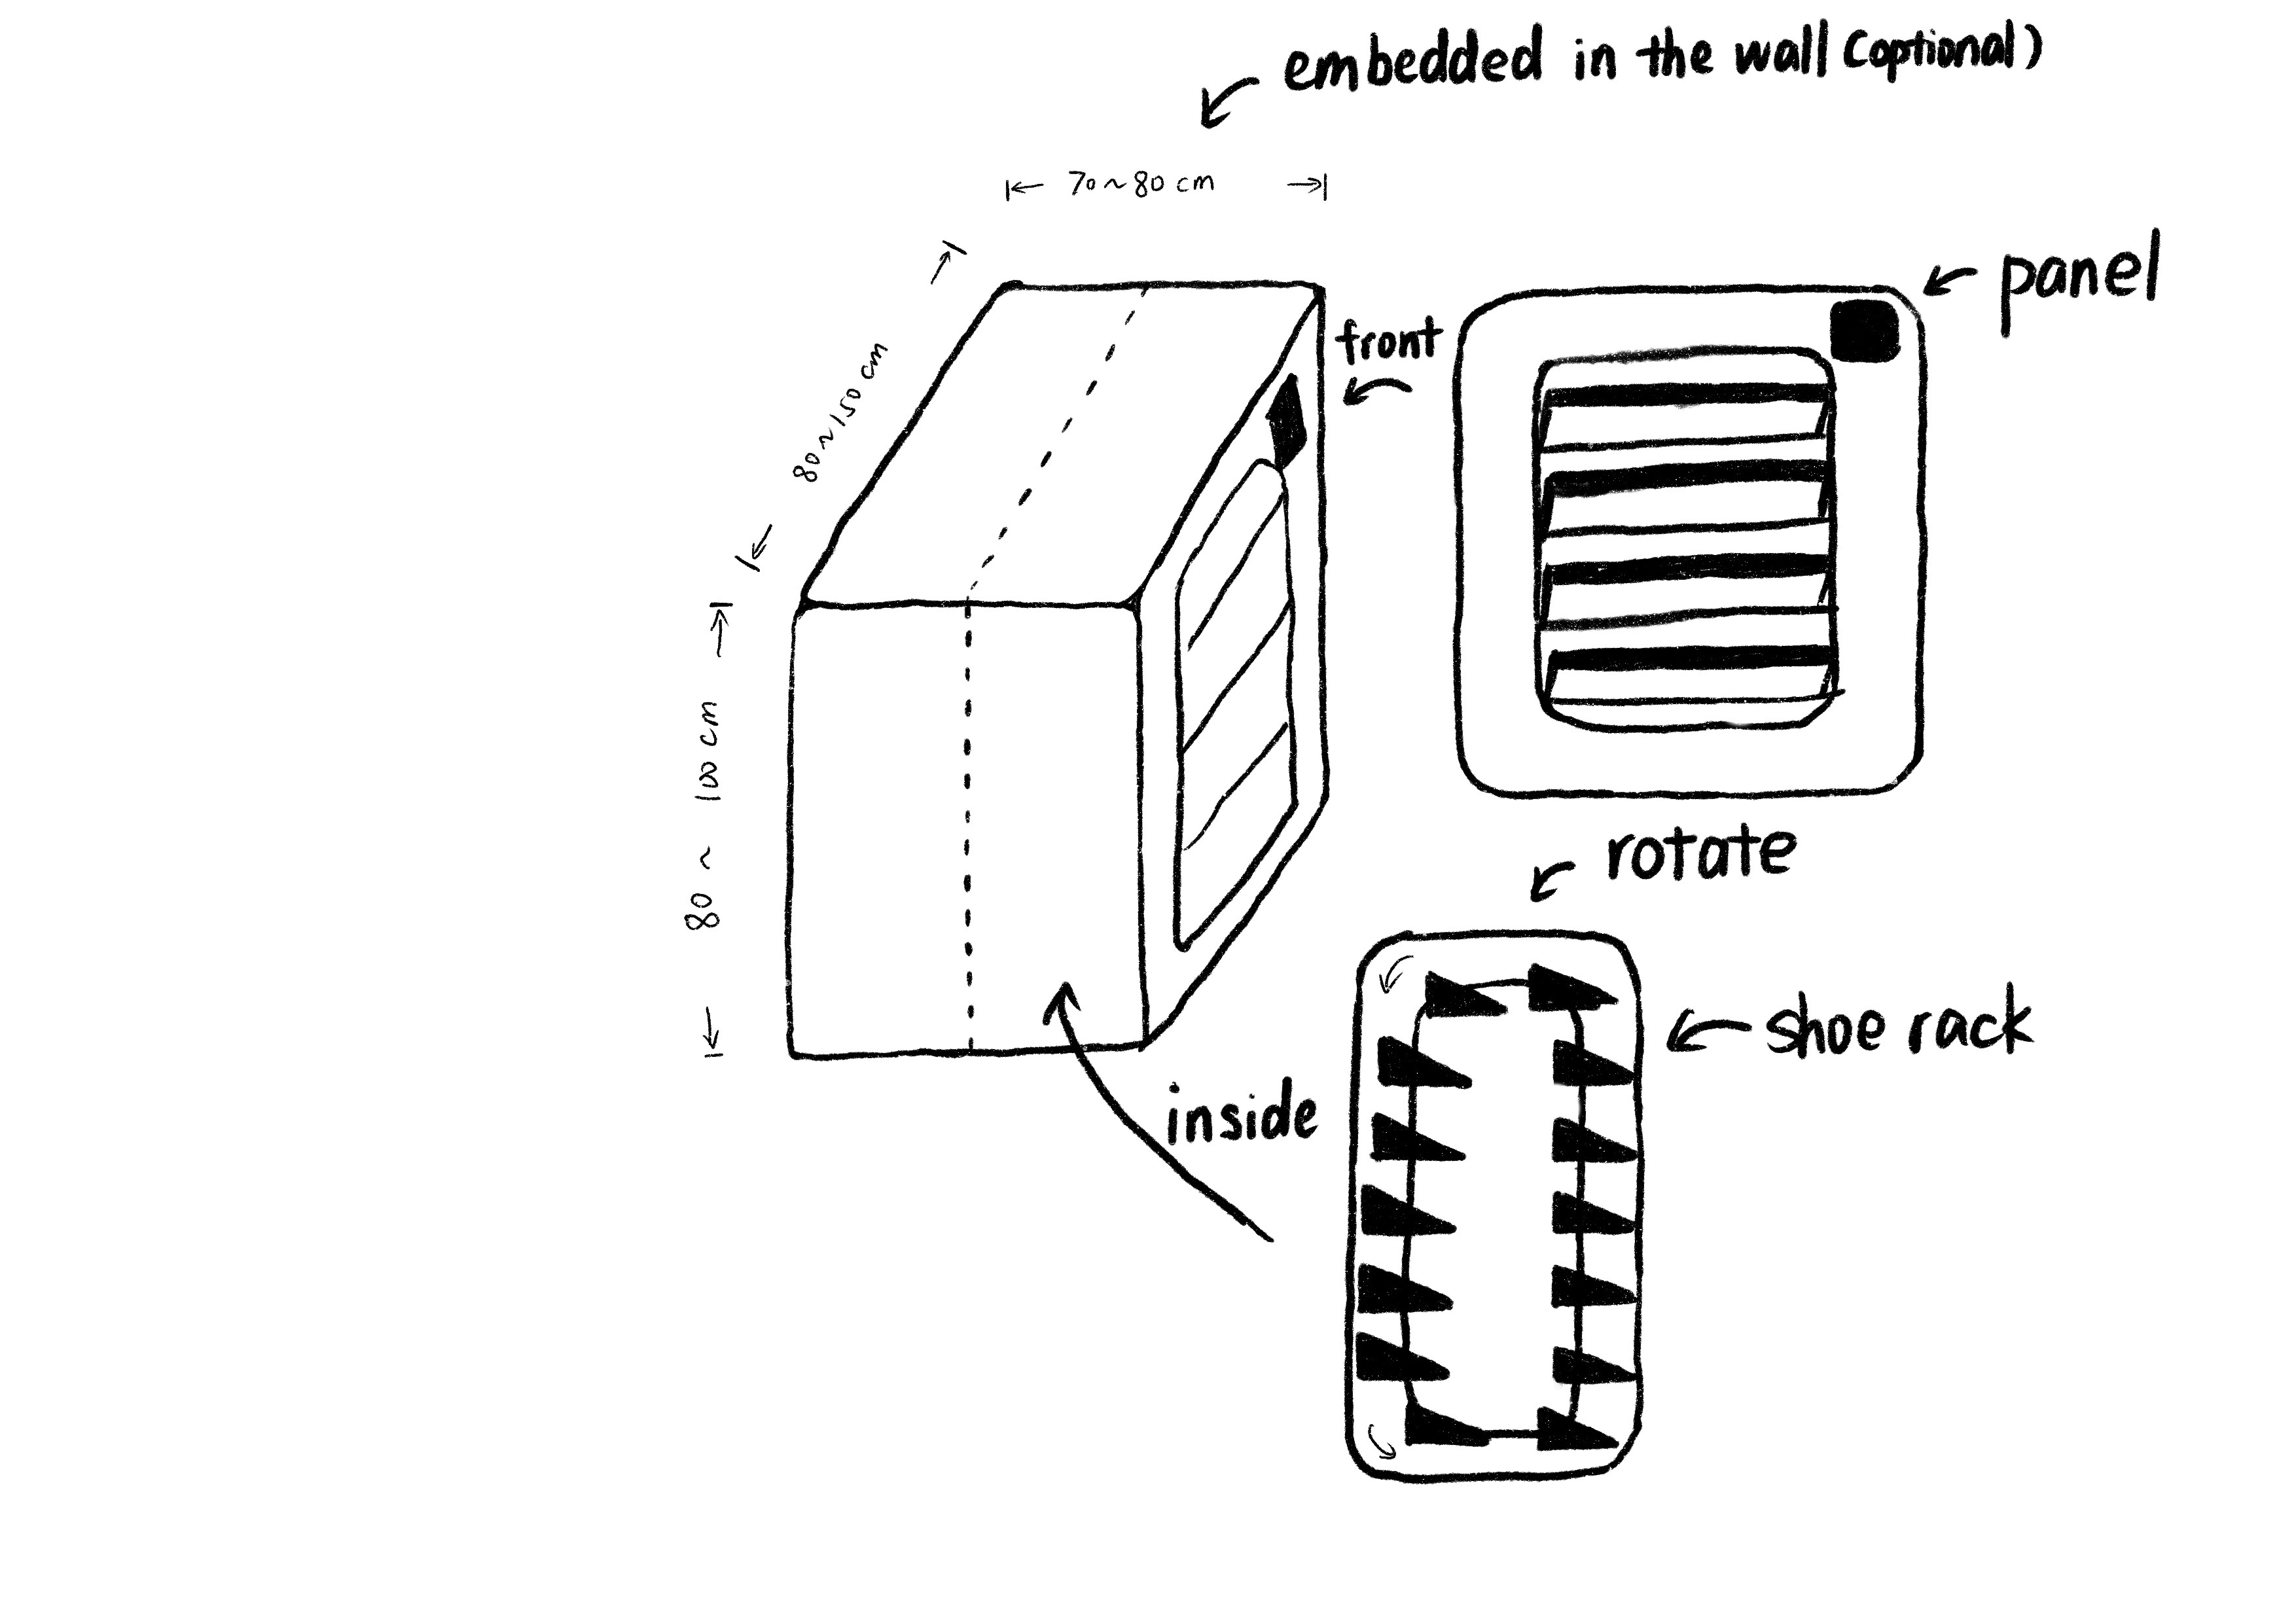 embedded in the wall (optional)
70~80 cm
80~150 cm
front
panel
80 ~ 100 cm
rotate
shoe rack
inside